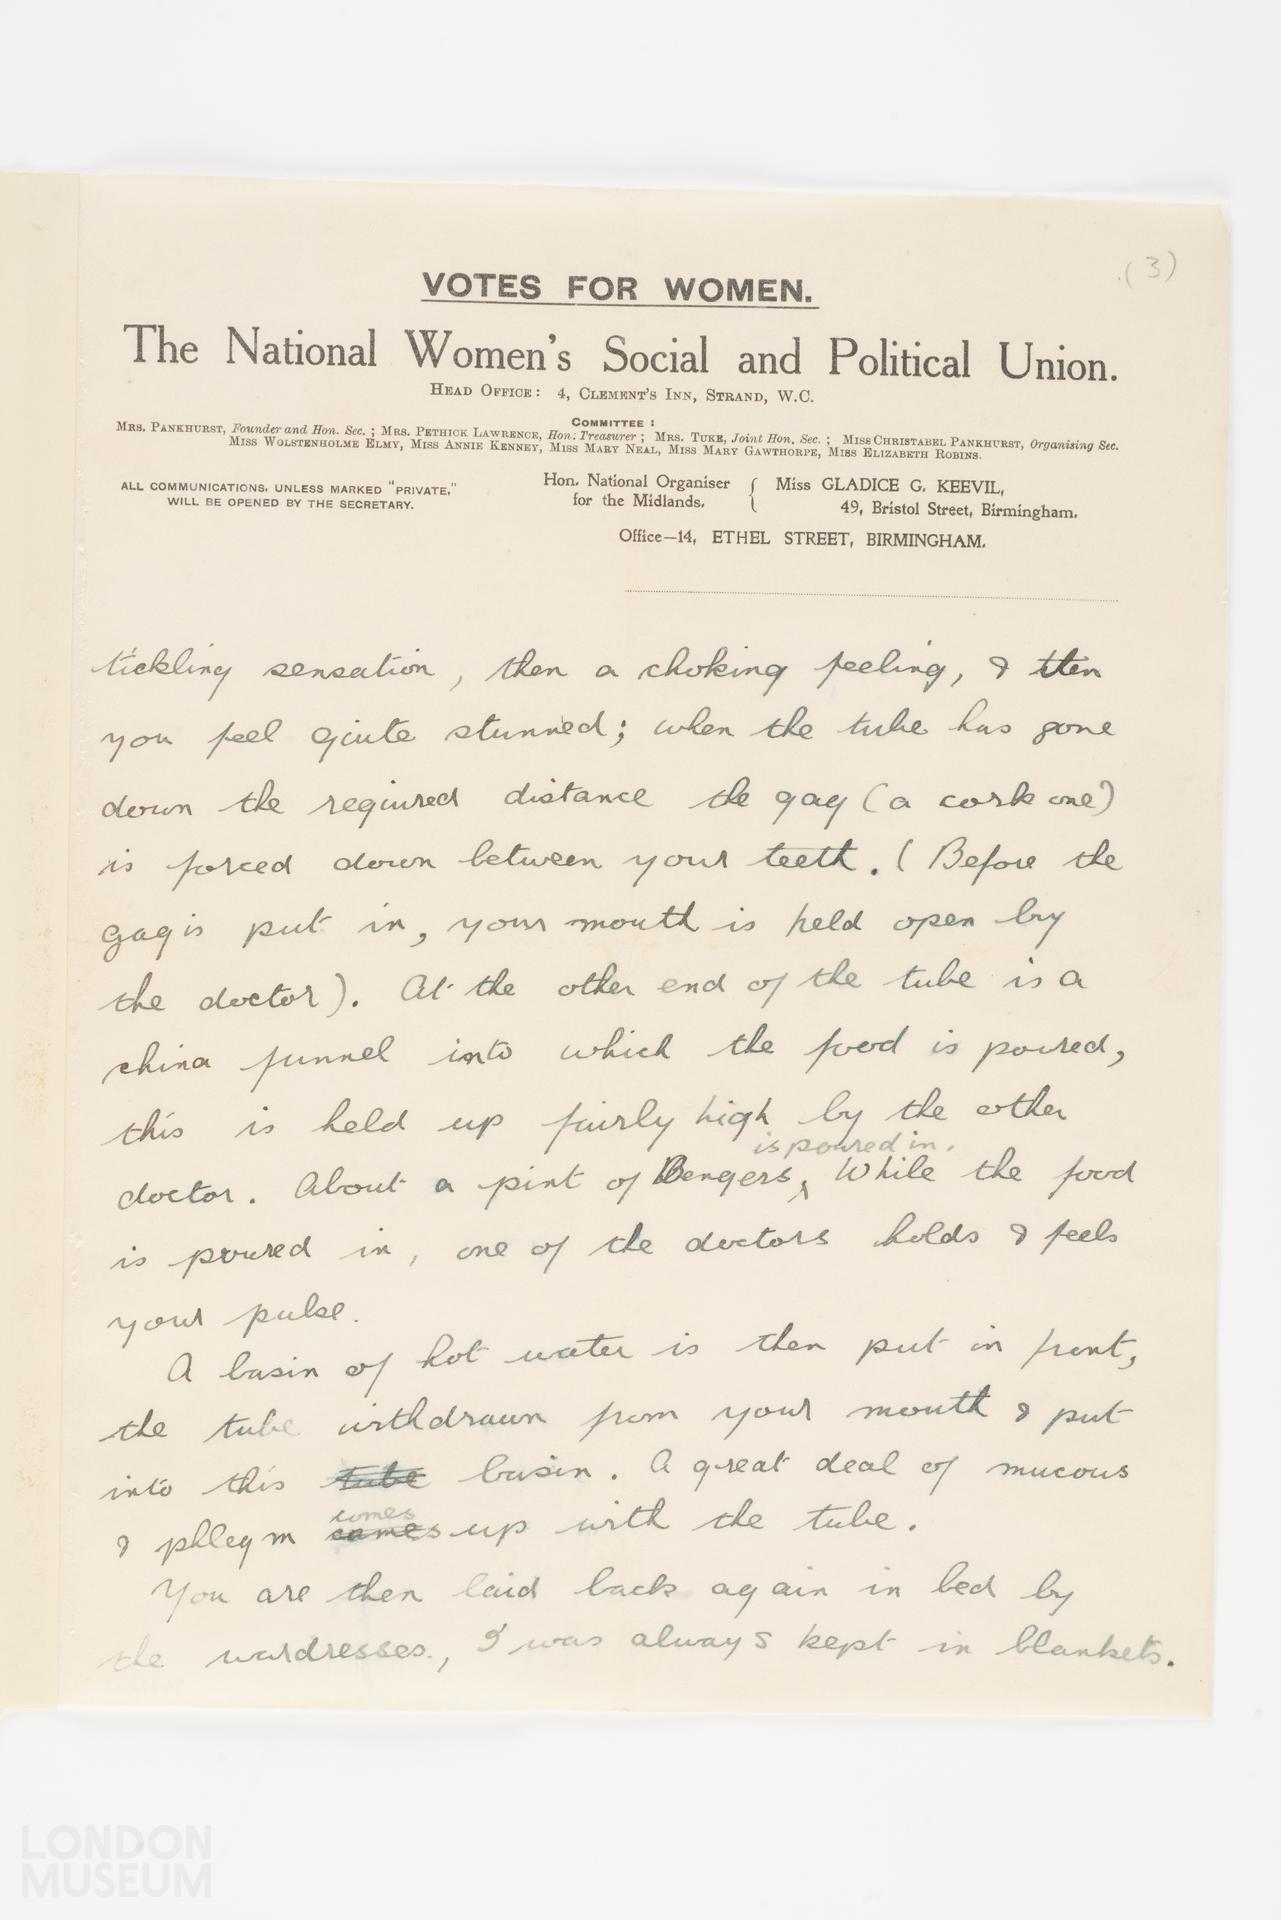 (3)
VOTES FOR WOMEN.
The National Women's Social and Political Union.
HEAD OFFICE: 4, CLEMENT'S INN, STRAND, W.C.
COMMITTEE:
MRS. PANKHURST, Founder and Hon. Sec.; MRS. PETHICK LAWRENCE, Hon. Treasurer; MRS. TUKE, Joint Hon. Sec.; MISS CHRISTABEL PANKHURST, Organising Sec.
MISS WOLSTENHOLME ELMY, MISS ANNIE KENNEY, MISS MARY NEAL, MISS MARY GAWTHORPE, MISS ELIZABETH ROBINS.
ALL COMMUNICATIONS, UNLESS MARKED "PRIVATE,"
WILL BE OPENED BY THE SECRETARY.
Hon. National Organiser
for the Midlands.
Miss GLADICE G. KEEVIL,
49, Bristol Street, Birmingham.
Office—14, ETHEL STREET, BIRMINGHAM.
tickling sensation, then a choking feeling, & then
you feel quite stunned; when the tube has gone
down the required distance the gag (a cork one)
is forced down between your teeth. (Before the
gag is put in, your mouth is held open by
the doctor). At the other end of the tube is a
china funnel into which the food is poured,
this is held up fairly high by the other
is poured in.
doctor. About a pint of Bengers, While the food
is poured in, one of the doctors holds & feels
your pulse.
A basin of hot water is then put in front,
the tube withdrawn from your mouth & put
into this tube basin. A great deal of mucous
comes
& phlegm comes up with the tube.
You are then laid back again in bed by
the wardresses., I was always kept in blankets.
LONDON
MUSEUM